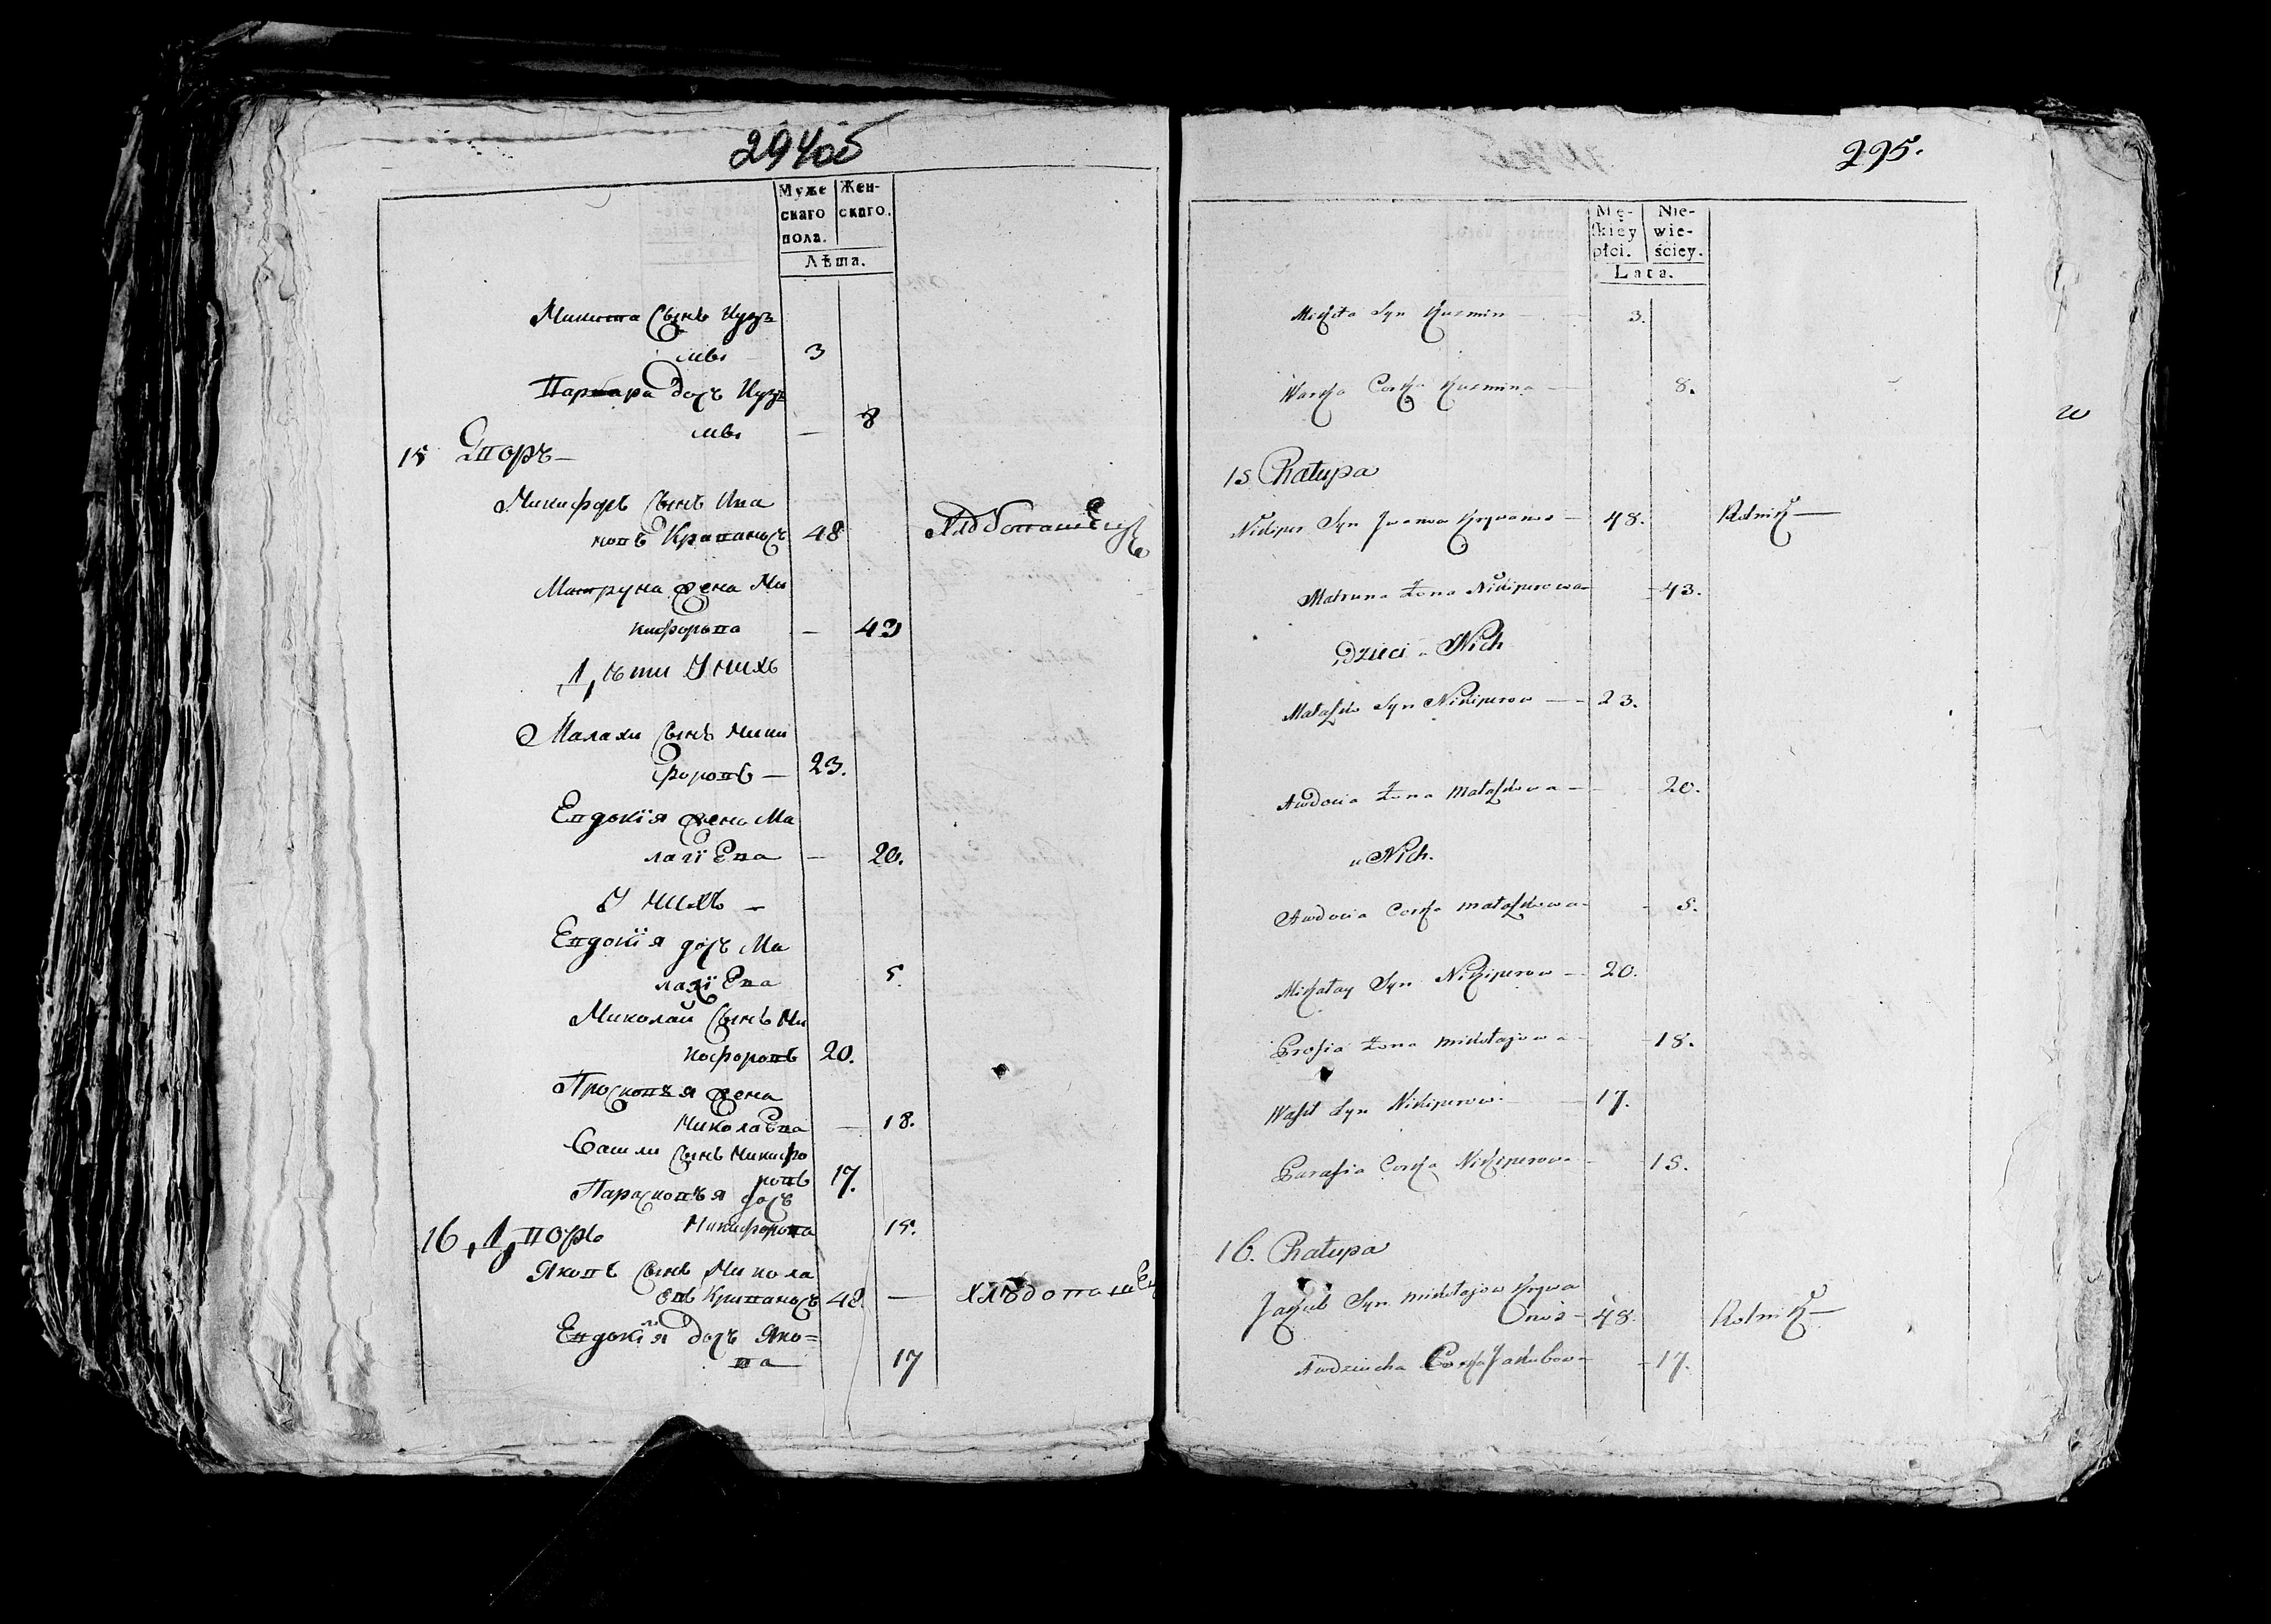 294об
Муже Жен-
скаго скаго.
пола.
Лѣта.
Микита Сынъ Кузь
мы 3
Варвара дочь Кузь
мы — 8
15 Дворъ —
Микифоръ Сынъ Ива
новъ Криваносъ 48 Хлѣбопашецъ
Матруна жена Ми
кифорова — 43
Дѣти У нихъ
Малахи Сынъ Мики
форовъ — 23.
Евдокія жена Ма
лахіева — 20.
У нихъ —
Евдокія дочь Ма
лахіева 5.
Миколай Сынъ Ми
кифоровъ 20.
Просковья жена
Миколаева — 18.
Васили Сынъ Микифо
ровъ 17.
Парасковья дочь
Микифорова 15.
16 Дворъ
Яковъ Сынъ Микола
евъ Криваносъ 48 — Хлѣбопашец
Евдокія дочь Яко=
ва 17
295.
Mę- Nie-
skiey wie-
płci. ściey.
Lata.
Mikita Syn Kuzmin 3.
Warka Corka Kuzmina 8.
15 Chałupa
Nikiper Syn Jwanow Krywonos 48. Rolnik
Matruna Żona Nikiperowa 43.
Dzieci u Nich
Małaszko Syn Nikiperow 23.
Awdocia Żona Małaszkowa 20.
u Nich.
Awdocia Corka Małaszkowa 5.
Mikołay Syn Nikiperow 20.
Prosia Żona Mikołajowa 18.
Wasil Syn Nikiperow 17.
Parasia Corka Nikiperowa 15.
16. Chałupa
Jakub Syn Mikołajow Krywo
nos 48. Rolnik
Awdziucha Corka Jakubowa 17.